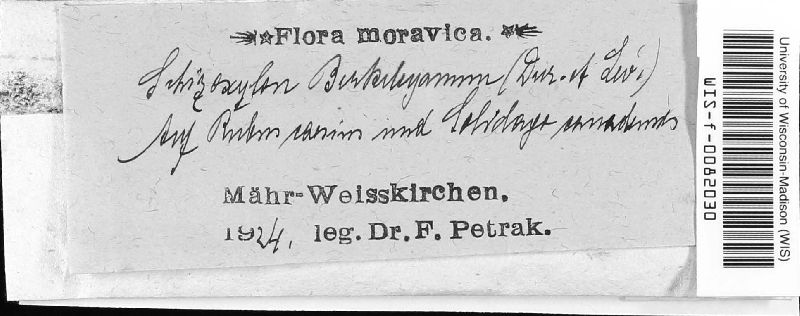 Flora moravica.
Schizoxylon Berkeleyanum (Dur. et Lév.)
Auf Rubus caesius und Solidago canadensis
Mähr-Weisskirchen.
1924. leg. Dr. F. Petrak.
University of Wisconsin-Madison (WIS)
WIS-f-0082030